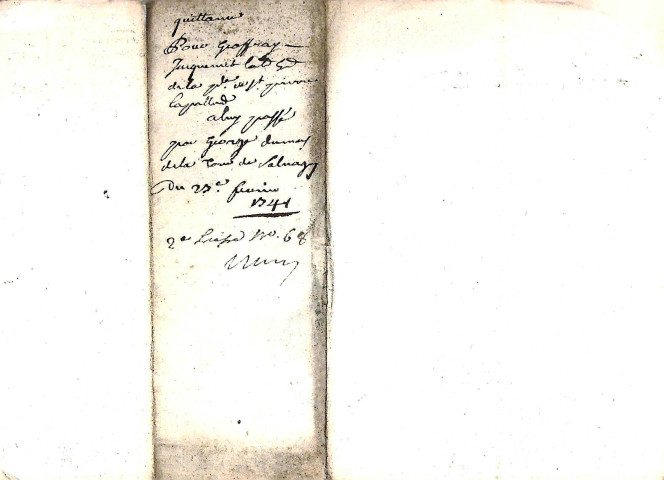 quittance
Pour Geoffray
Jacquemet
de la p.se de S.t pierre
lapallud
a luy passé
par George dumas
de la Tour de Salvagny
Du 23.e fevrier
1741
2.e Liasse No. 68